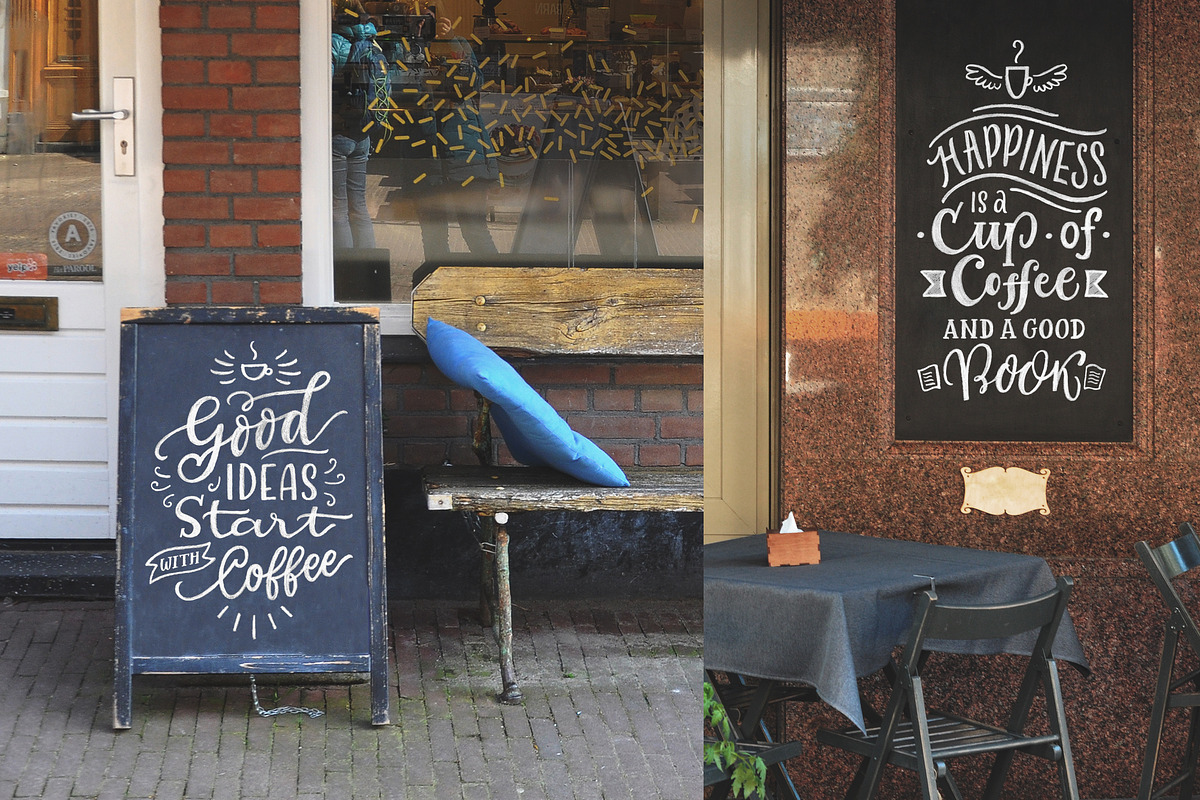 Good
IDEAS
Start
WITH
Coffee
A
yelp
HET PAROOL
HAPPINESS
IS a
Cup of
Coffee
AND A GOOD
BOOK